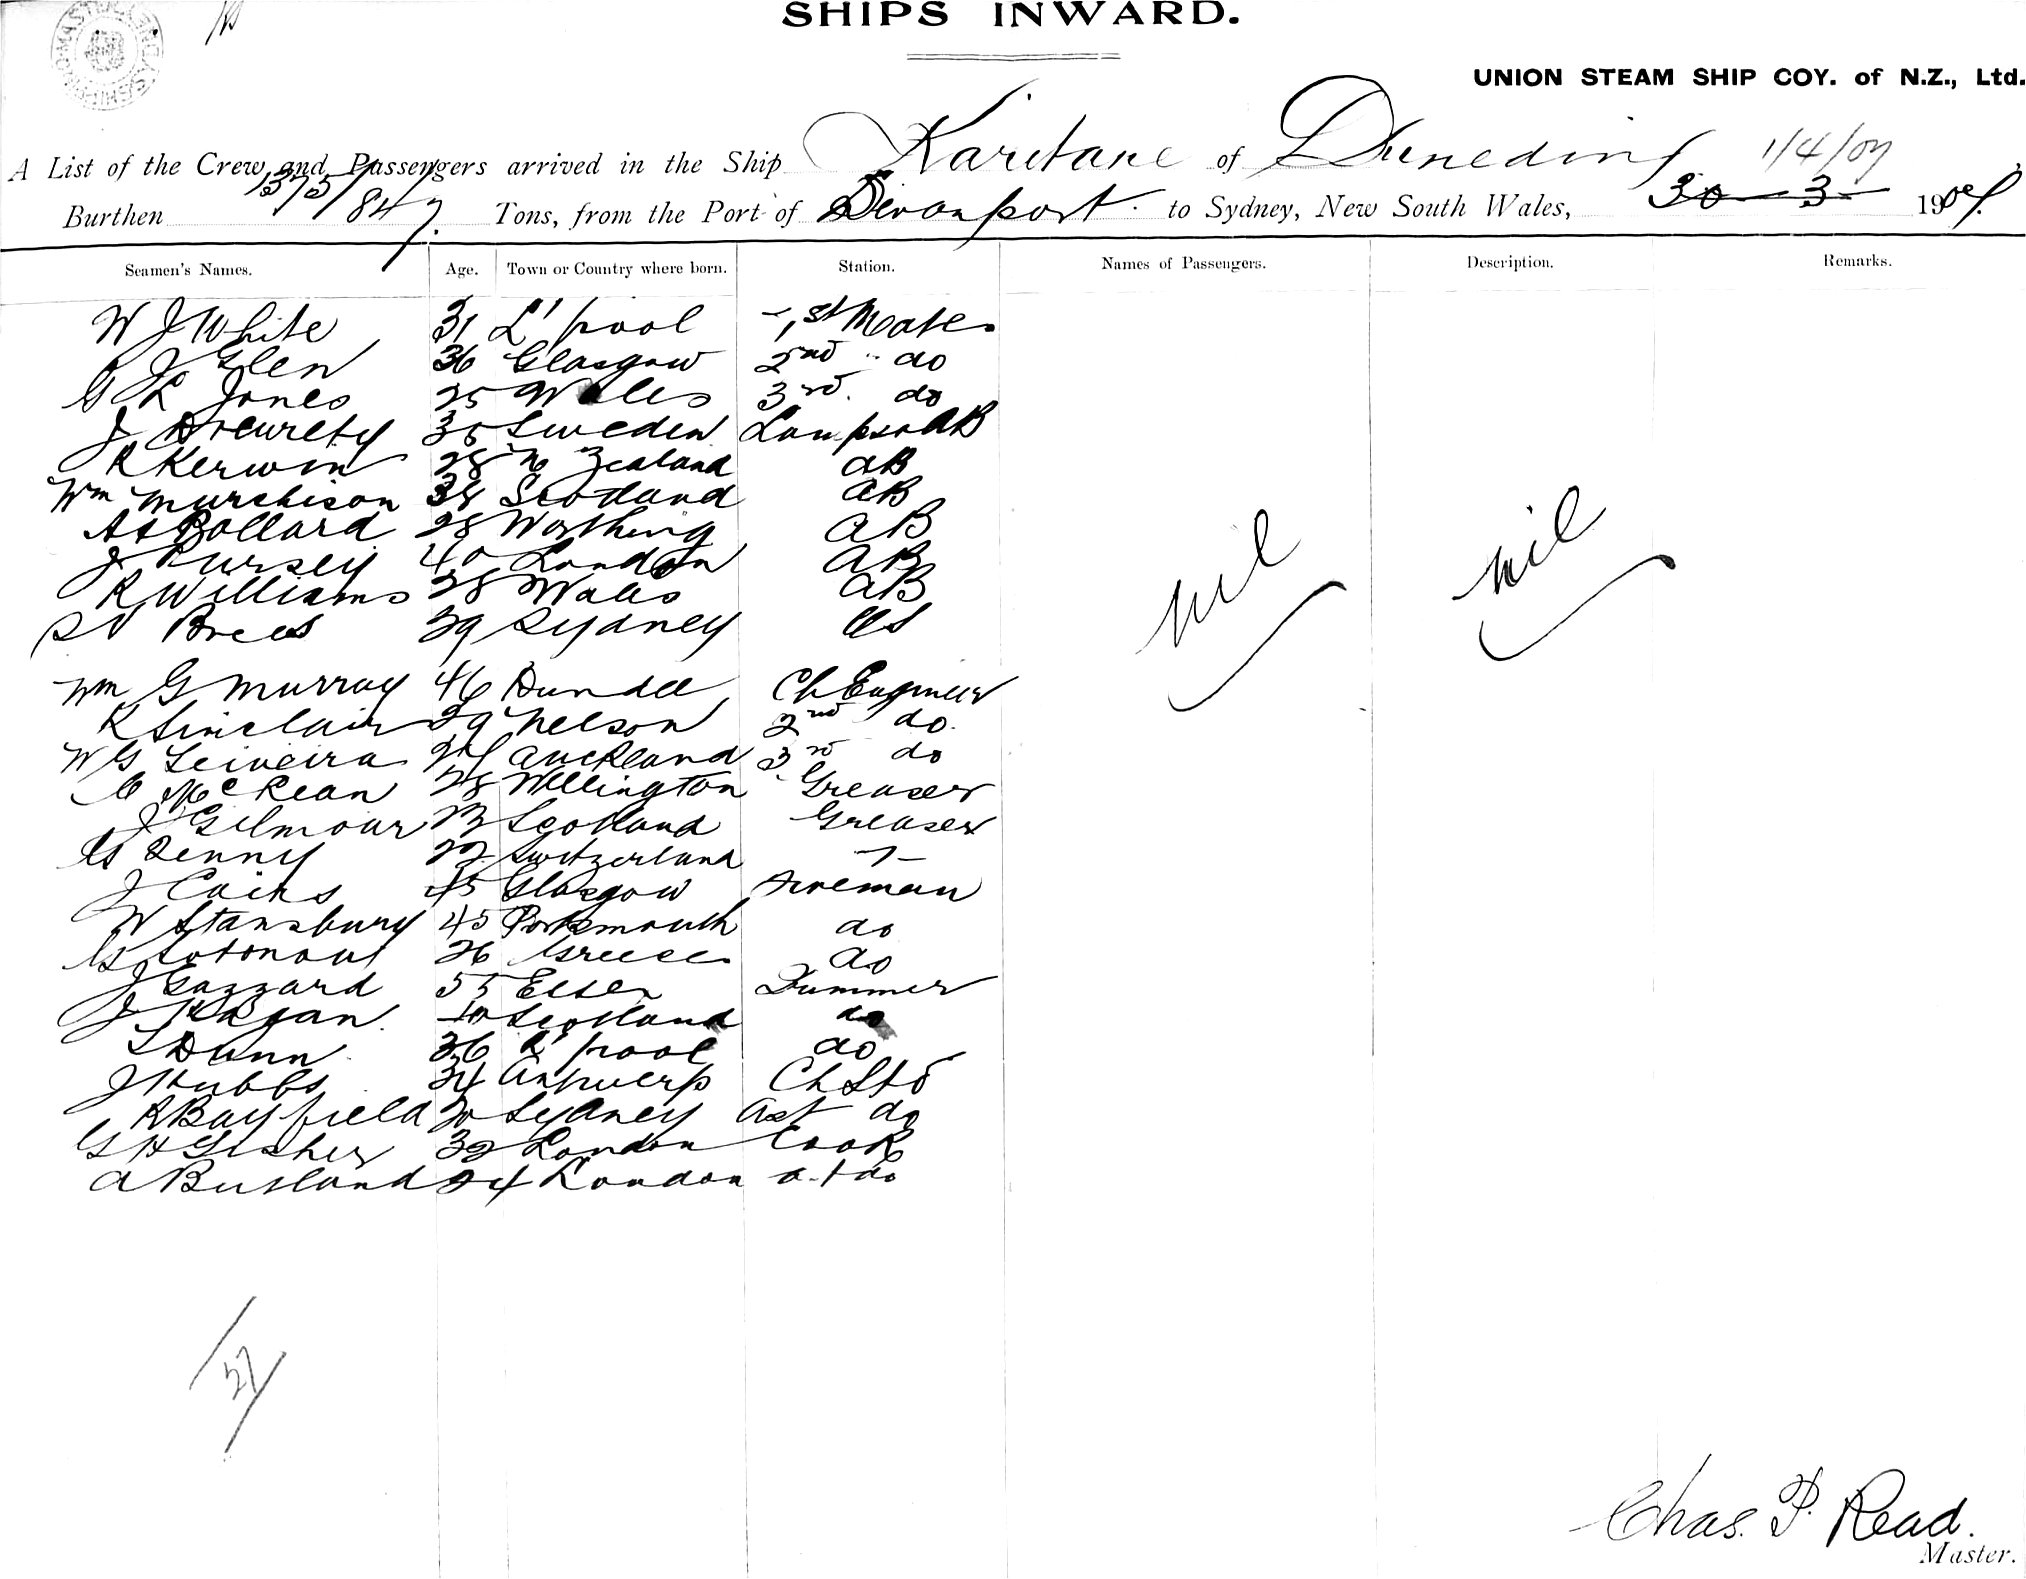 SHIPS INWARD.
UNION STEAM SHIP COY. of N.Z., Ltd.
A List of the Crew and Passengers arrived in the Ship Karitane of Dunedin 1/4/07
Burthen 1375/847. Tons, from the Port of Devonport to Sydney, New South Wales, 30-3- 1907.
Seamen's Names. Age. Town or Country where born. Station. Names of Passengers. Description. Remarks.
W J White 31 L'pool 1st Mate
J Glen 36 Glasgow 2nd do
G L Jones 25 Wales 3rd. do
J 35 Sweden Lamps & AB
R Kerwin 28 N Zealand AB
Wm Murchison 38 Scotland AB
A S Bollard 28 Worthing AB
J Pursey 40 London AB
R Williams 28 Wales AB
Brees 29 Sydney OS
nil nil
Wm G Murray 46 Dundee Ch Engineer
R Sinclair 29 Nelson 2nd do.
W G Auckland 3rd do
C McKean 28 Wellington Greaser
J Gilmour 23 Scotland Greaser
Switzerland
J Cairns 45 Glasgow Fireman
W Stansbury 45 Portsmouth do
G 26 Greece do
J Gazzard 55 Essex Trimmer
J Hagan. 40 Scotland do
Dunn 36 L'pool do
J Hubbs 34 Antwerp Ch Std
R Bayfield 20 Sydney Ast do
G H Fisher 32 London Cook
A Busland 24 London do
27
Chas. P. Read.
Master.